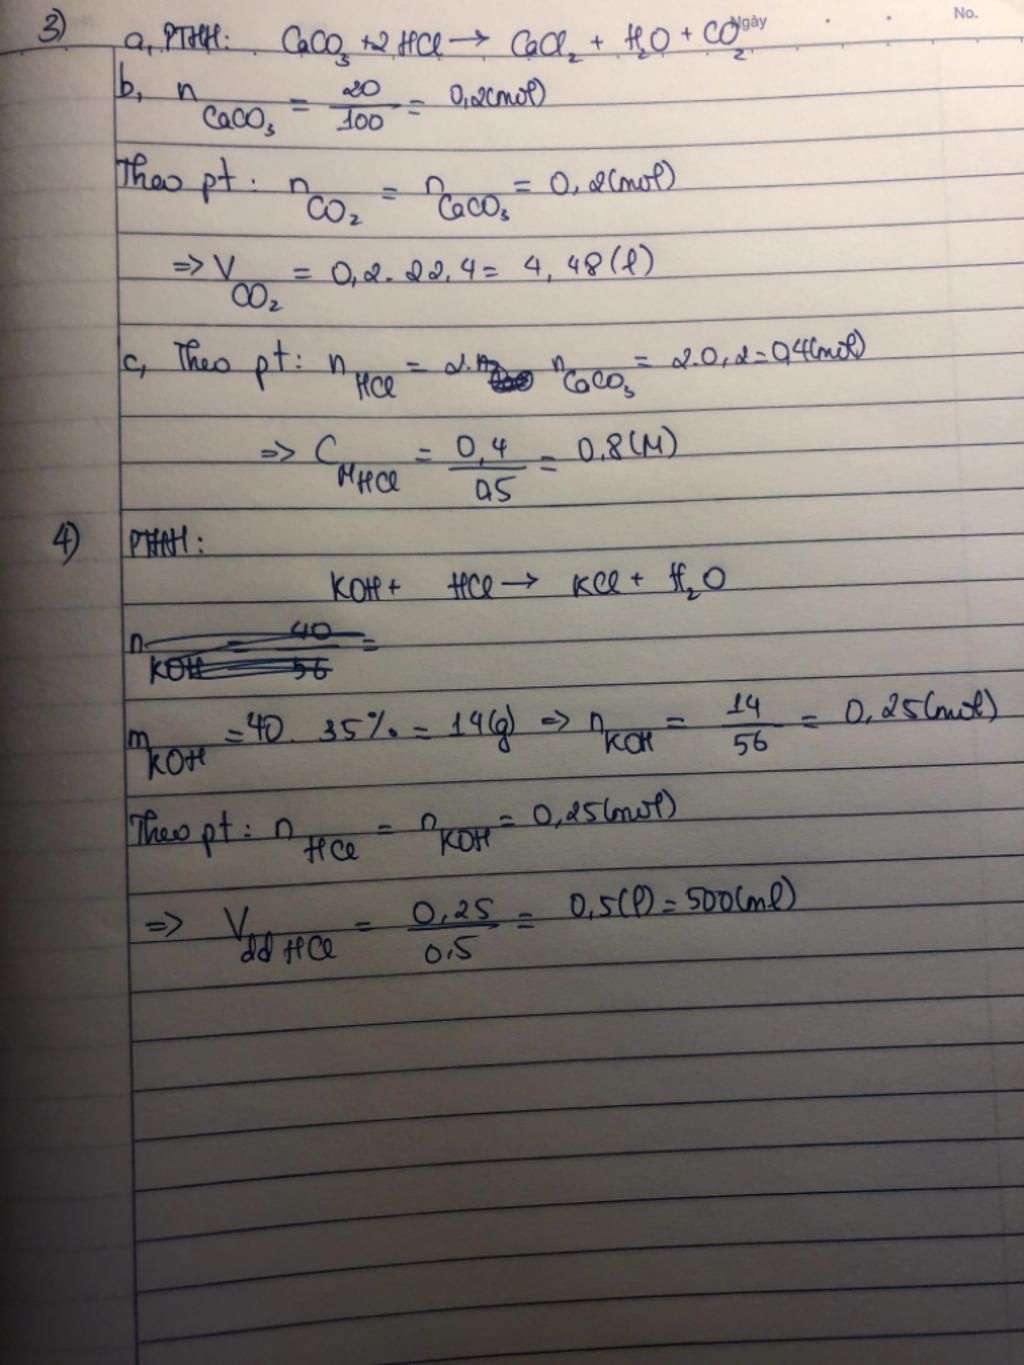 Ngày No.
3) a, PTHH: CaCO3 + 2 HCl → CaCl2 + H2O + CO2
b, nCaCO3 = 20/100 = 0,2(mol)
Theo pt: nCO2 = nCaCO3 = 0,2(mol)
=> VCO2 = 0,2. 22,4 = 4,48(l)
c, Theo pt: nHCl = 2. nCaCO3 = 2.0,2 = 0,4(mol)
=> CMHCl = 0,4/0,5 = 0,8(M)
4) PTHH:
KOH + HCl → KCl + H2O
nKOH = 40/56 =
mKOH = 40. 35% = 14(g) => nKOH = 14/56 = 0,25(mol)
Theo pt: nHCl = nKOH = 0,25(mol)
=> Vdd HCl = 0,25/0,5 = 0,5(l) = 500(ml)